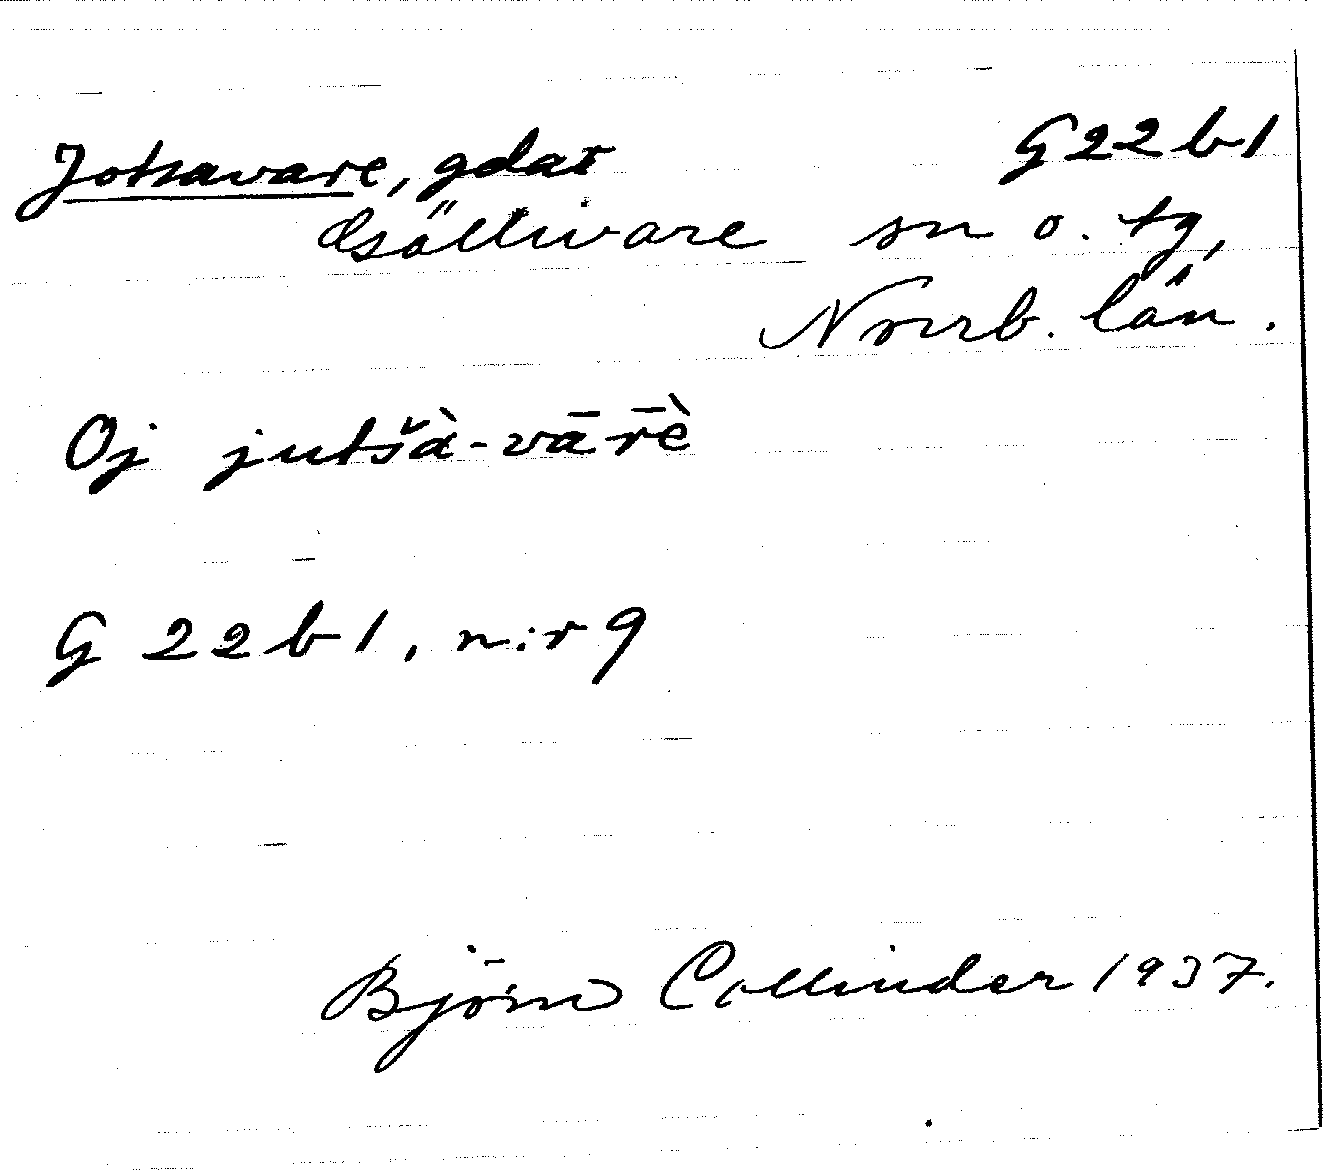 Jotsavare, gdar G22b1
Gällivare sn o. tg,
Norrb. län.
Oj jutšà-vārḕ
G 22b1, n:r 9
Björn Collinder 1937.